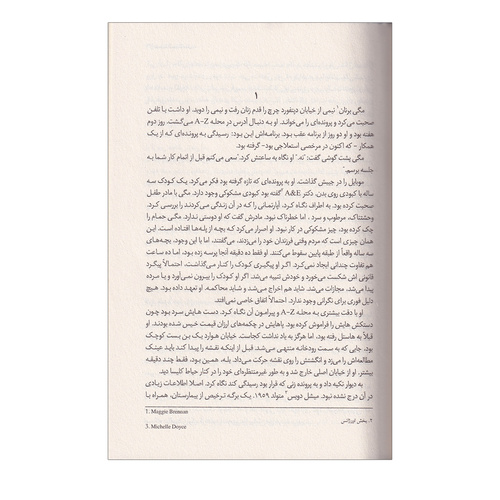 ۱
مگی برنان۱ نیمی از خیابان دپتفورد چرچ را قدم زنان رفت و نیمی را دوید. او داشت با تلفن
صحبت می‌کرد و پرونده‌ای را می‌خواند. او به دنبال آدرس در محله A–Z می‌گشت. روز دوم
هفته بود و او دو روز از برنامه عقب بود. برنامه‌اش این بود: رسیدگی به پرونده‌ای که از یک
همکار – که اکنون در مرخصی استعلاجی بود– گرفته بود.
مگی پشت گوشی گفت: "نه." او نگاه به ساعتش کرد. "سعی می‌کنم قبل از اتمام کار شما به
جلسه برسم."
موبایل را در جیبش گذاشت. او به پرونده‌ای که تازه گرفته بود فکر می‌کرد. یک کودک سه
ساله با کبودی روی بدن. دکتر A&E۲ گفته بود کبودی مشکوکی وجود دارد. مگی با مادر طفل
صحبت کرده بود. به اطراف نگاه کرد. آپارتمانی را که در آن زندگی می‌کردند را بررسی کرد.
وحشتناک، مرطوب و سرد ، اما خطرناک نبود. مادرش گفت که او دوستی ندارد. مگی حمام را
چک کرده بود، چیز مشکوکی در کار نبود. او اصرار می‌کرد که بچه از پله‌ها افتاده است. این
همان چیزی است که مردم وقتی فرزندان خود را می‌زدند، می‌گفتند، اما با این وجود، بچه‌های
سه ساله واقعاً از طبقه پایین سقوط می‌کنند. او فقط ده دقیقه آنجا پرسه زده بود، اما ده ساعت
هم تفاوت چندانی ایجاد نمی‌کرد. اگر او پیگیری کودک را کنار می‌گذاشت، احتمالاً پیگرد
قانونی اش شکست می‌خورد و خودش تنبیه می‌شد. اگر او کودک را بیرون نمی‌آورد و یا مرده
پیدا می‌شد، مجازات می‌شد. شاید هم اخراج می‌شد و شاید محاکمه. او تعهد داده بود. هیچ
دلیل فوری برای نگرانی وجود ندارد. احتمالاً اتفاق خاصی نمی‌افتد.
او با دقت بیشتری به محله A–Z و پیرامون آن نگاه کرد. دست هایش سرد بود چون
دستکش هایش را فراموش کرده بود. پاهایش در چکمه‌های ارزان قیمت خیس شده بودند. او
قبلاً به هاستل رفته بود، اما هرگز به یاد نداشت کجاست. خیابان هوارد یک بن بست کوچک
بود، جایی که به سمت رودخانه منتهی می‌شد. قبل از اینکه نقشه را پیدا کند باید عینک
مطالعه‌اش را می‌زد و انگشتش را روی نقشه حرکت می‌داد. بله، همین بود، فقط چند دقیقه
بیشتر. او از خیابان اصلی خارج شد و به طور غیرمنتظره‌ای خود را در کنار حیاط کلیسا دید.
به دیوار تکیه داد و به پرونده زنی که قرار بود رسیدگی کند نگاه کرد. اصلا اطلاعات زیادی
در آن درج نشده نبود. میشل دویس۳ متولد ۱۹۵۹. یک برگه ترخیص از بیمارستان، همراه با
1. Maggie Brennan
۲. بخش اورژانس
3. Michelle Doyce